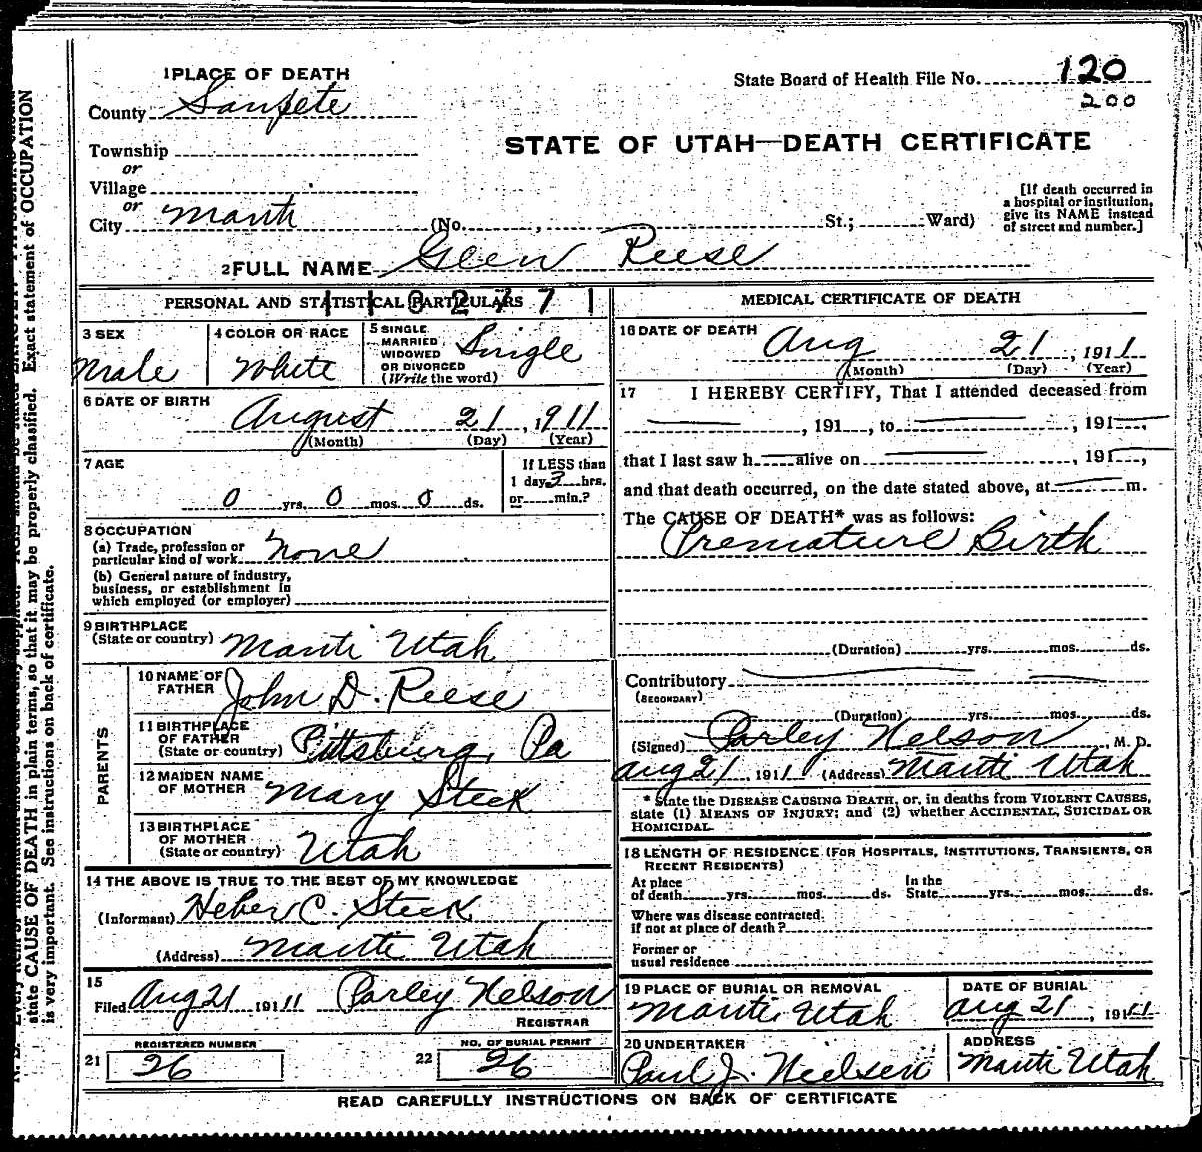 1 PLACE OF DEATH
State Board of Health File No. 120
200
County Sanpete
STATE OF UTAH—DEATH CERTIFICATE
Township
or
Village
or
City Manti (No. , St.; Ward)
[If death occurred in
a hospital or institution,
give its NAME instead
of street and number.]
2 FULL NAME Glen Reese
PERSONAL AND STATISTICAL PARTICULARS
3 SEX
Male
4 COLOR OR RACE
White
5 SINGLE
MARRIED
WIDOWED
OR DIVORCED
(Write the word)
Single
6 DATE OF BIRTH
August 21, 1911
(Month) (Day) (Year)
7 AGE
0 yrs. 0 mos. 0 ds.
If LESS than
1 day 2 hrs.
or min.?
8 OCCUPATION
(a) Trade, profession or
particular kind of work None
(b) General nature of industry,
business, or establishment in
which employed (or employer)
9 BIRTHPLACE
(State or country) Manti Utah
PARENTS
10 NAME OF
FATHER John D. Reese
11 BIRTHPLACE
OF FATHER
(State or country) Pittsburg, Pa
12 MAIDEN NAME
OF MOTHER Mary Steck
13 BIRTHPLACE
OF MOTHER
(State or country) Utah
14 THE ABOVE IS TRUE TO THE BEST OF MY KNOWLEDGE
(Informant) Heber C. Steck
(Address) Manti Utah
15
Filed Aug 21 1911 Parley Nelson
REGISTRAR
21 REGISTERED NUMBER
26
22 NO. OF BURIAL PERMIT
26
MEDICAL CERTIFICATE OF DEATH
16 DATE OF DEATH
Aug 21, 1911
(Month) (Day) (Year)
17 I HEREBY CERTIFY, That I attended deceased from
, 191 , to , 191 ,
that I last saw h alive on , 191 ,
and that death occurred, on the date stated above, at m.
The CAUSE OF DEATH* was as follows:
Premature Birth
(Duration) yrs. mos. ds.
Contributory
(SECONDARY)
(Duration) yrs. mos. ds.
(Signed) Parley Nelson, M. D.
Aug 21, 1911 (Address) Manti Utah
* State the DISEASE CAUSING DEATH, or, in deaths from VIOLENT CAUSES,
state (1) MEANS OF INJURY; and (2) whether ACCIDENTAL, SUICIDAL OR
HOMICIDAL.
18 LENGTH OF RESIDENCE (FOR HOSPITALS, INSTITUTIONS, TRANSIENTS, OR
RECENT RESIDENTS)
At place
of death yrs. mos. ds.
In the
State yrs. mos. ds.
Where was disease contracted,
if not at place of death?
Former or
usual residence
19 PLACE OF BURIAL OR REMOVAL
Manti Utah
DATE OF BURIAL
Aug 21, 1911
20 UNDERTAKER
Paul J. Nielsen
ADDRESS
Manti Utah
READ CAREFULLY INSTRUCTIONS ON BACK OF CERTIFICATE
state CAUSE OF DEATH in plain terms, so that it may be properly classified. Exact statement of OCCUPATION
is very important. See instructions on back of certificate.